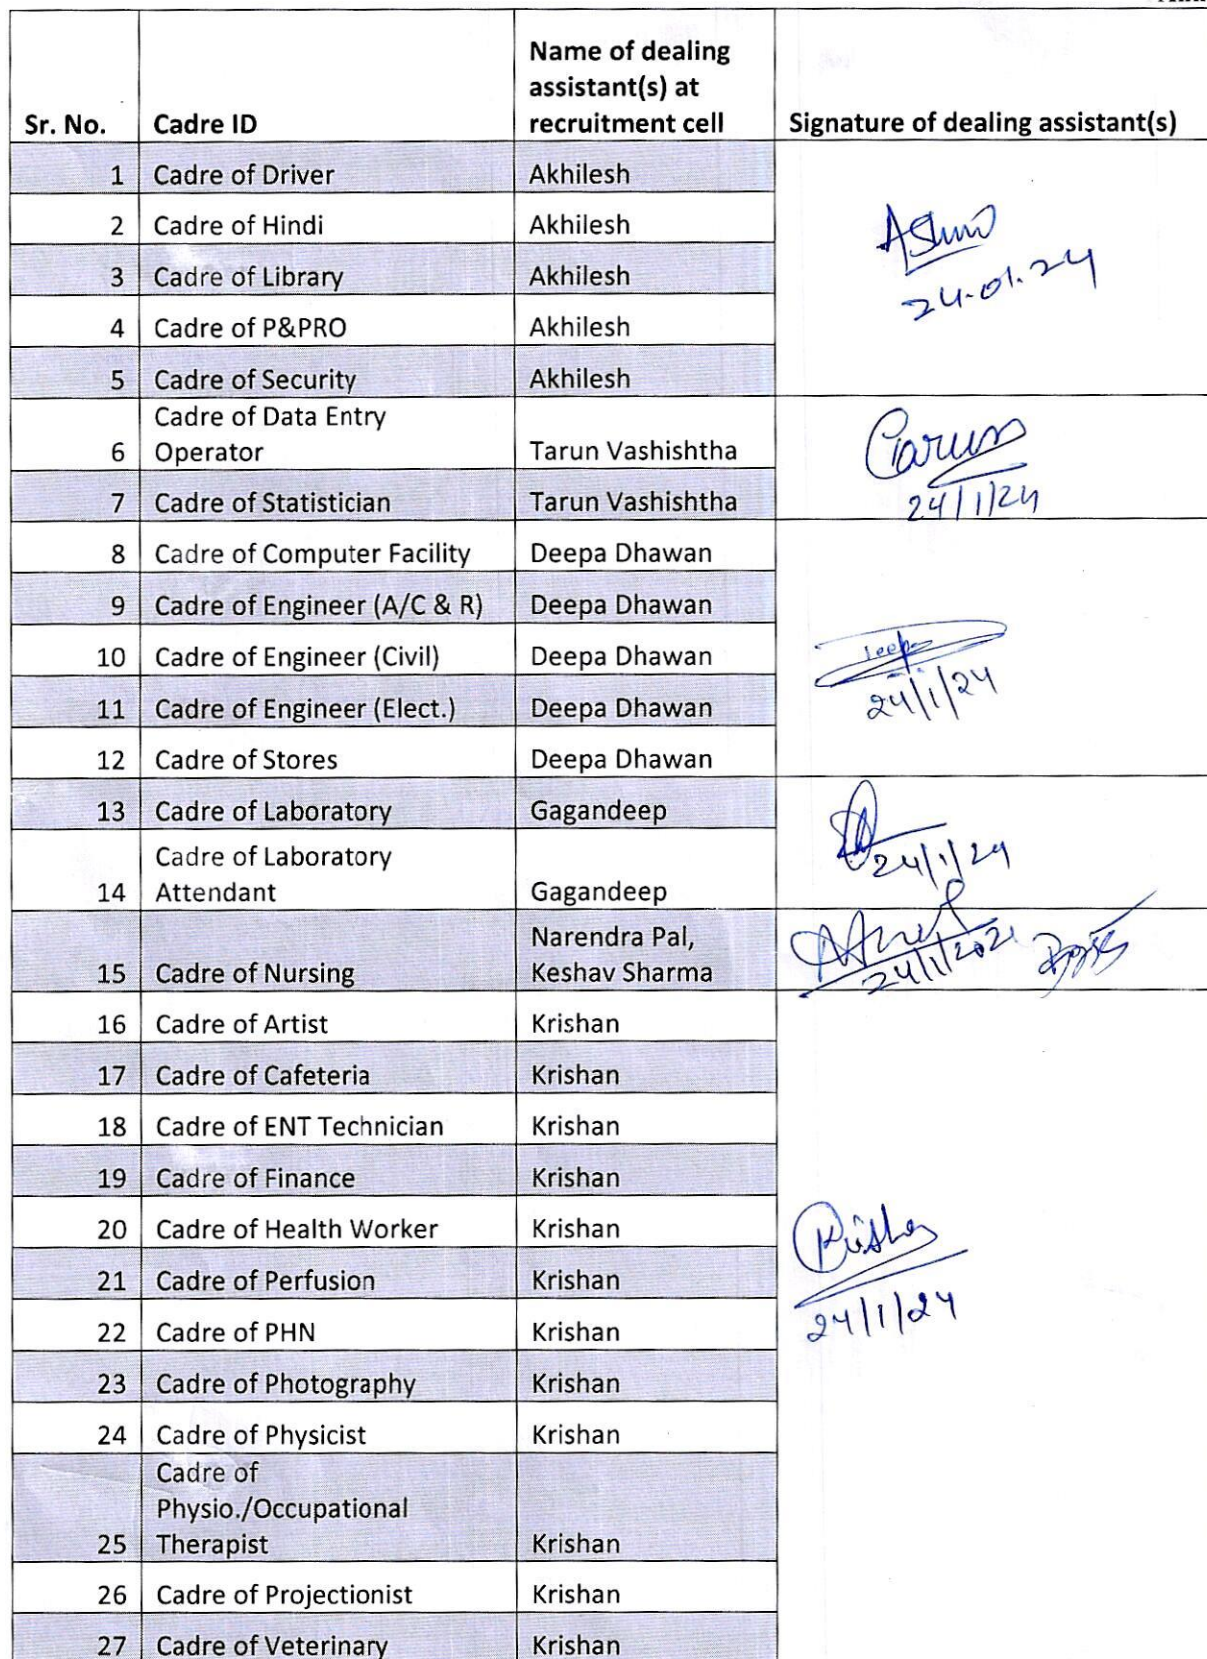 Name of dealing
assistant(s) at
Sr. No. Cadre ID recruitment cell Signature of dealing assistant(s)
1 Cadre of Driver Akhilesh
2 Cadre of Hindi Akhilesh
3 Cadre of Library Akhilesh
24.01.24
4 Cadre of P&PRO Akhilesh
5 Cadre of Security Akhilesh
Cadre of Data Entry
6 Operator Tarun Vashishtha
7 Cadre of Statistician Tarun Vashishtha
24/1/24
8 Cadre of Computer Facility Deepa Dhawan
9 Cadre of Engineer (A/C & R) Deepa Dhawan
10 Cadre of Engineer (Civil) Deepa Dhawan
24/1/24
11 Cadre of Engineer (Elect.) Deepa Dhawan
12 Cadre of Stores Deepa Dhawan
13 Cadre of Laboratory Gagandeep
24/1/24
Cadre of Laboratory
14 Attendant Gagandeep
Narendra Pal,
15 Cadre of Nursing Keshav Sharma
16 Cadre of Artist Krishan
17 Cadre of Cafeteria Krishan
18 Cadre of ENT Technician Krishan
19 Cadre of Finance Krishan
20 Cadre of Health Worker Krishan
21 Cadre of Perfusion Krishan
24/1/24
22 Cadre of PHN Krishan
23 Cadre of Photography Krishan
24 Cadre of Physicist Krishan
Cadre of
Physio./Occupational
25 Therapist Krishan
26 Cadre of Projectionist Krishan
27 Cadre of Veterinary Krishan